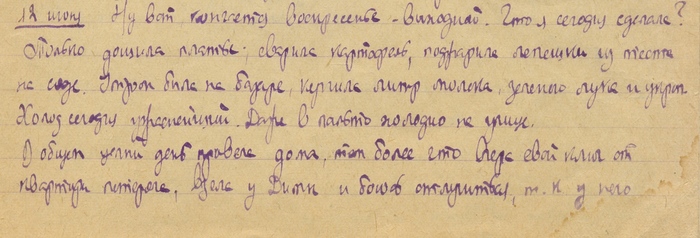 12 июня Ну вот кончается Воскресенье - выходной. Что я сегодня сделала?
Только дошила платье, сварила картофель, поджарила лепешки из теста
на соде. Утром была на базаре, купила литр молока, зеленого лука и укроп.
Холод сегодня ужаснейший. Даже в пальто холодно на улице.
В общем целый день провела дома, тем более что Вера свой ключ от
квартиры потеряла, взяла у Вити и боюсь отлучиться, т. к у него